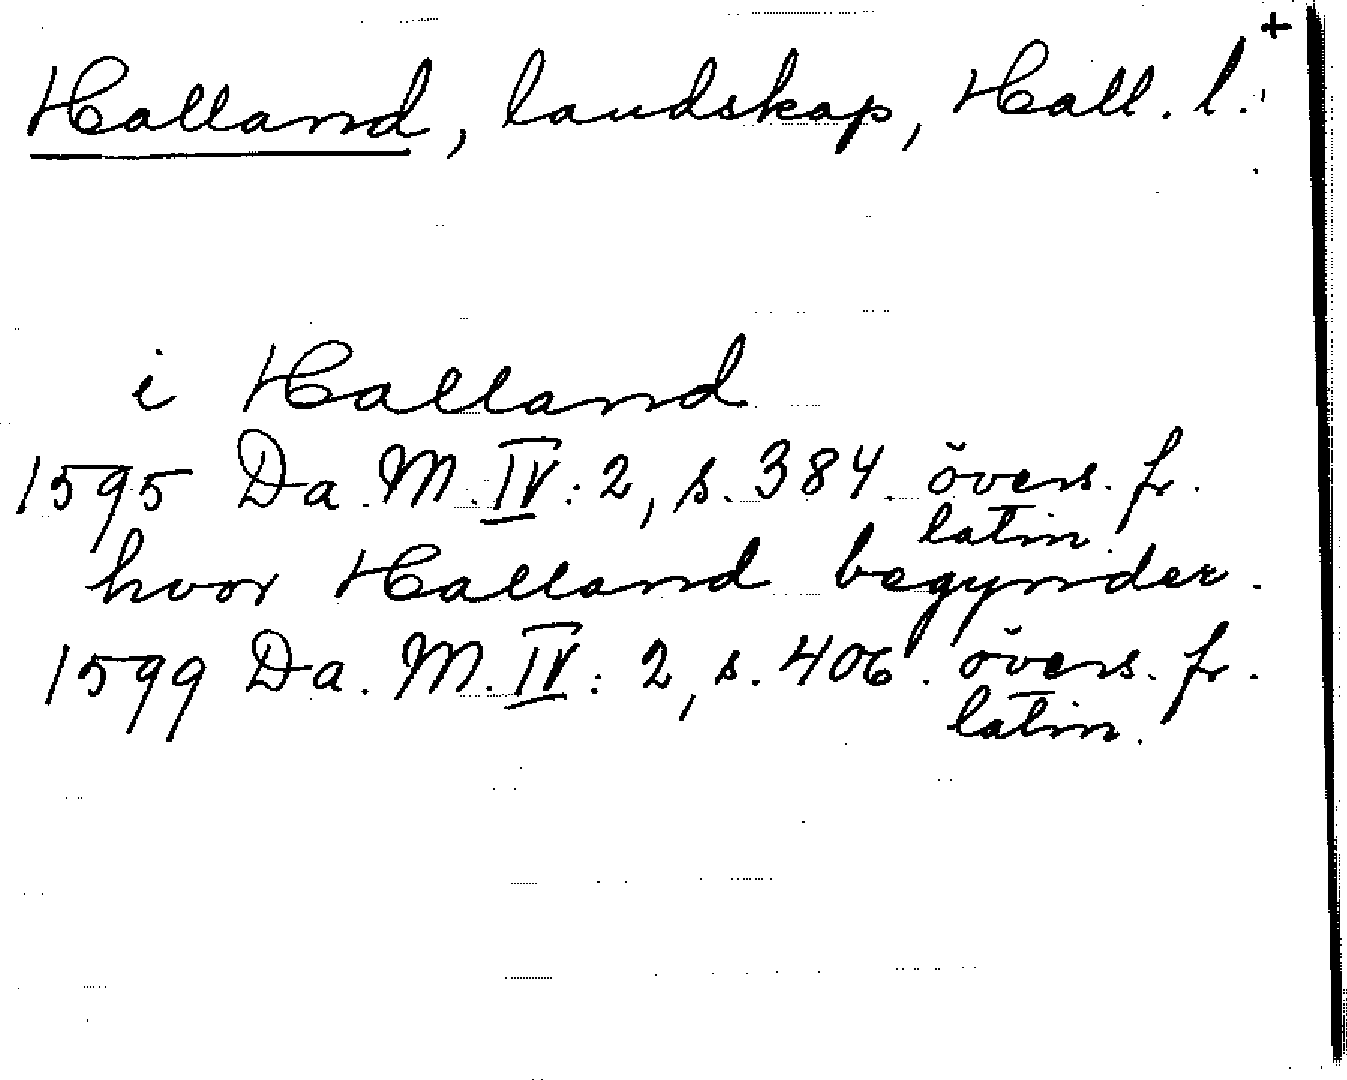 +
Halland, landskap, Hall. l.
i Halland
1595 Da. M. IV: 2, s. 384. övers. fr.
latin.
hvor Halland begynder.
1599 Da. M. IV: 2, s. 406. övers. fr.
latin.